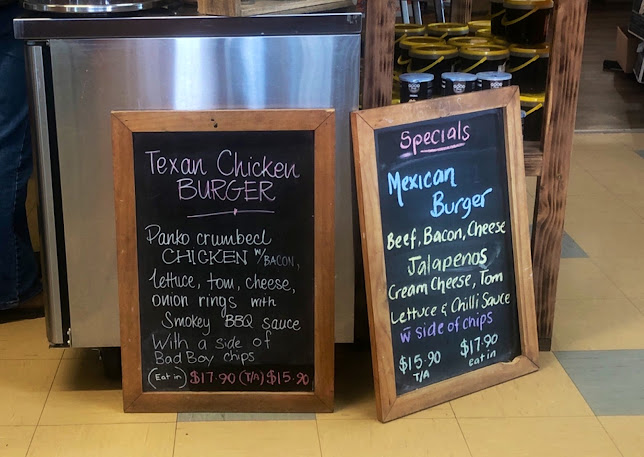 Texan Chicken
BURGER
Panko crumbed
CHICKEN w/BACON,
lettuce, tom, cheese,
onion rings with
Smokey BBQ sauce
With a side of
Bad Boy chips
(Eat in) $17.90 (T/A) $15.90
Specials
Mexican
Burger
Beef, Bacon, Cheese
Jalapenos
Cream Cheese, Tom
Lettuce & Chilli Sauce
w̄ side of chips
$15.90 $17.90
T/A eat in